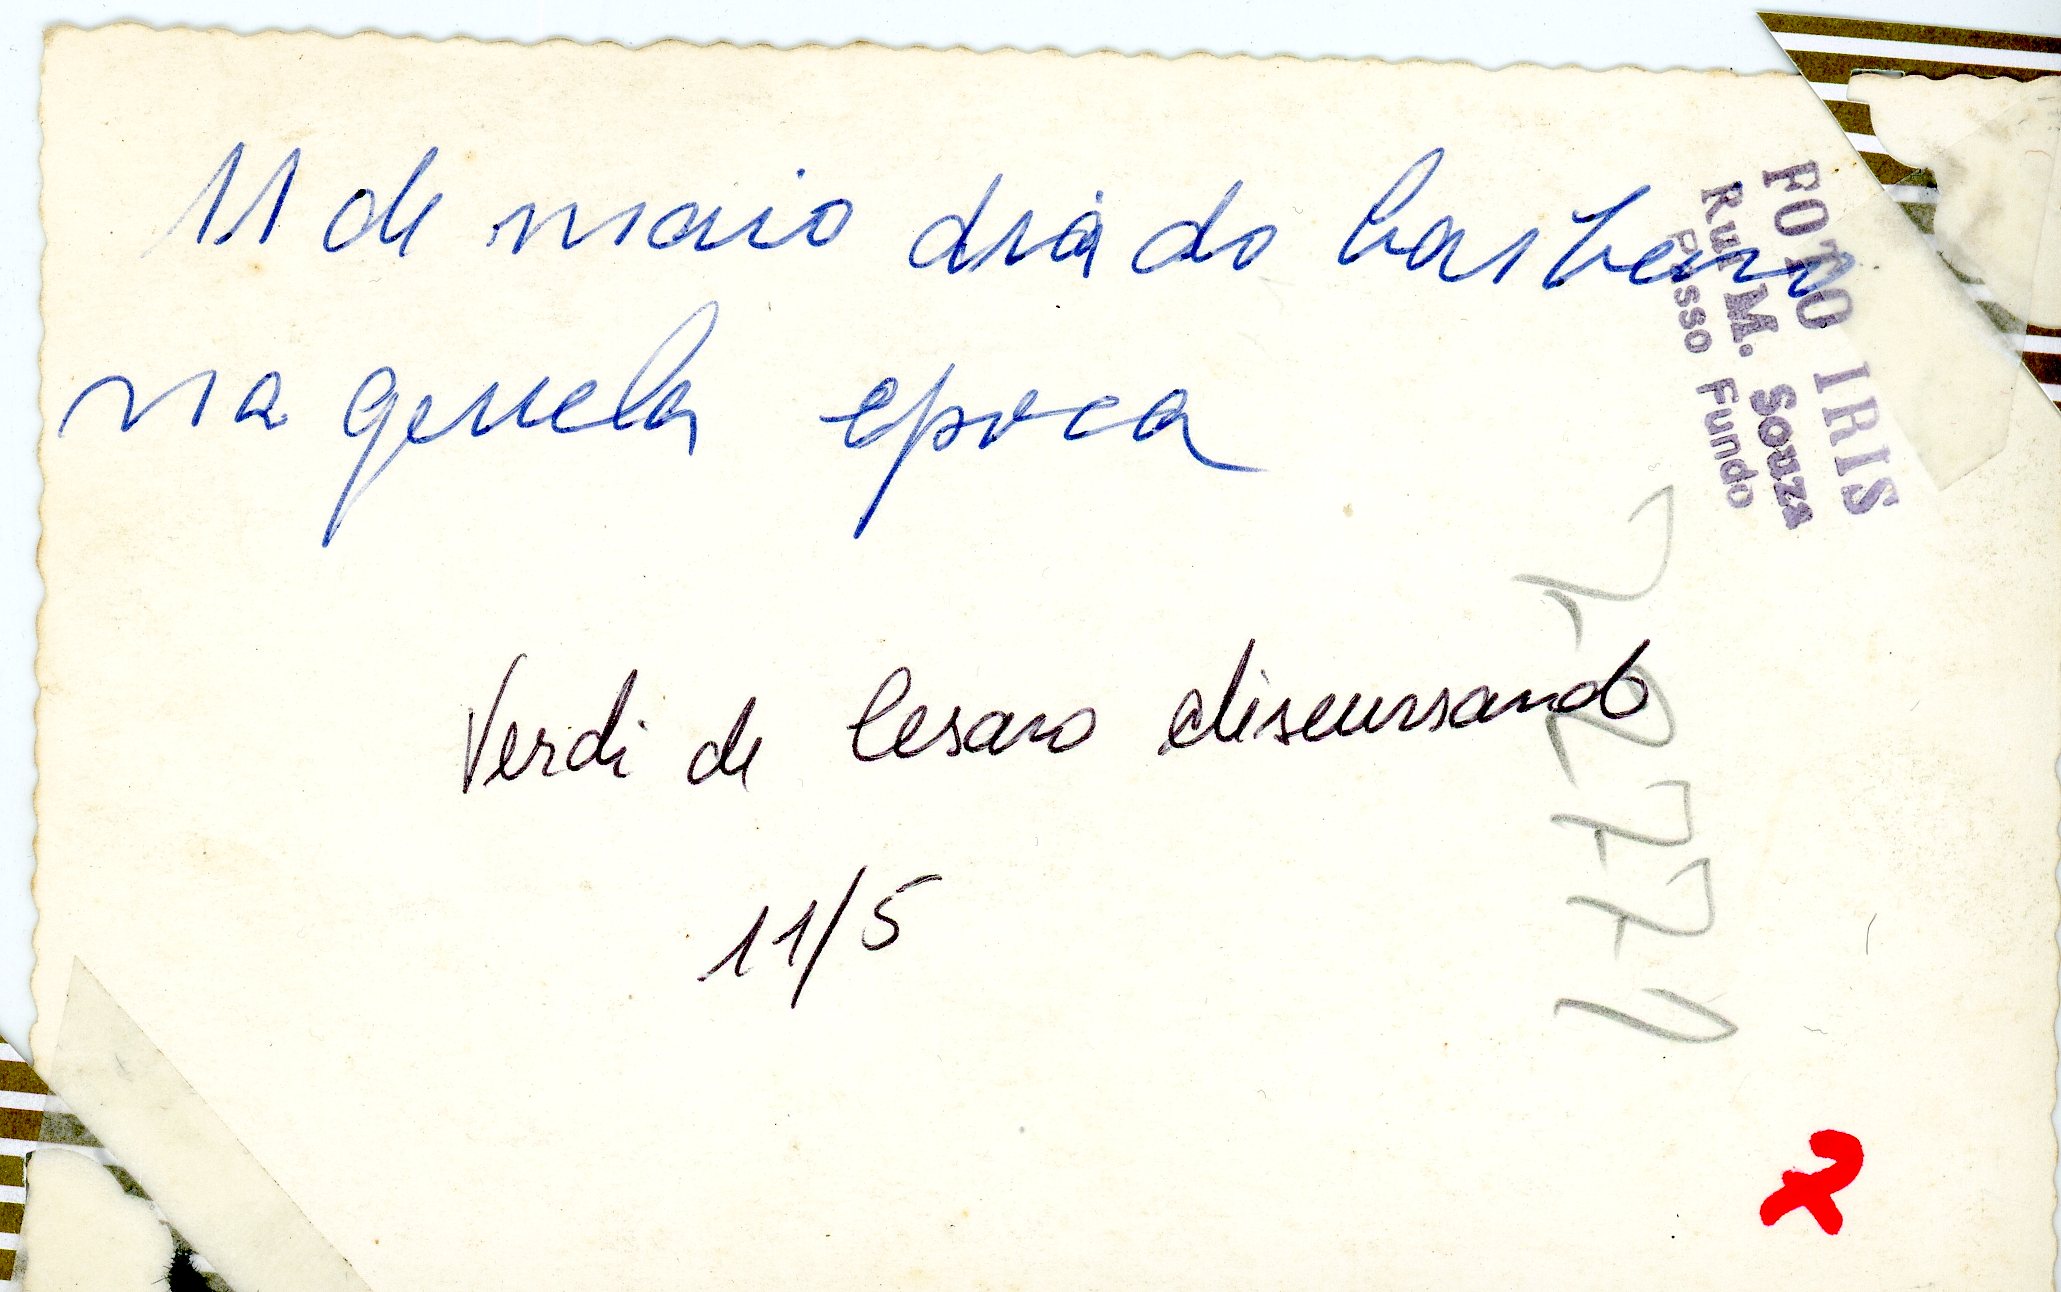 11 de maio dia do barbeiro
na quela epoca
FOTO IRIS
Rui M. Souza
Passo Fundo
Verdi de Cesaro discursando
11/5